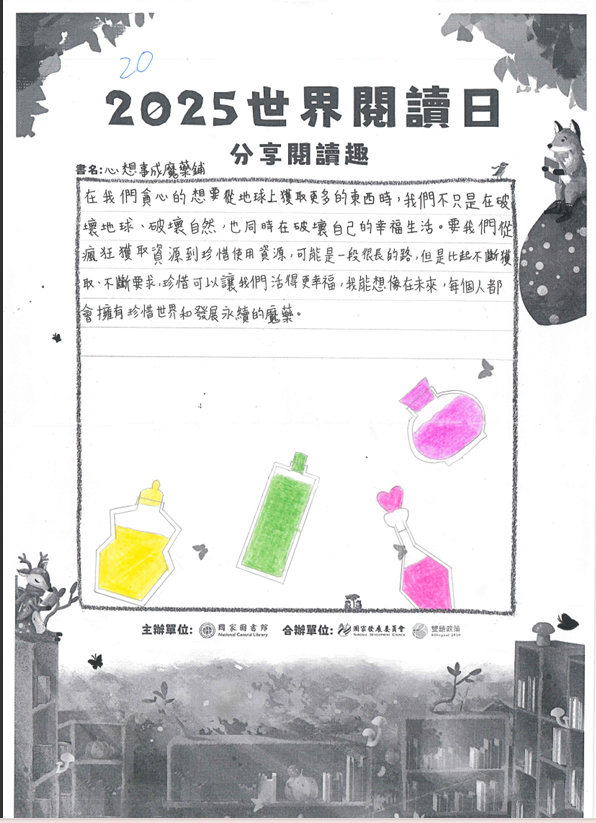 20
2025世界閱讀日
分享閱讀趣
書名:心想事成魔藥鋪
在我們貪心的想要從地球上獲取更多的東西時,我們不只是在破
壞地球、破壞自然,也同時在破壞自己的幸福生活。要我們從
瘋狂獲取資源到珍惜使用資源,可能是一段很長的路,但是比起不斷獲
取、不斷要求,珍惜可以讓我們活得更幸福,我能想像在未來,每個人都
會擁有珍惜世界和發展永續的魔藥。
主辦單位: 國家圖書館 National Central Library 合辦單位: 國家發展委員會 National Development Council 雙語政策 Bilingual 2030